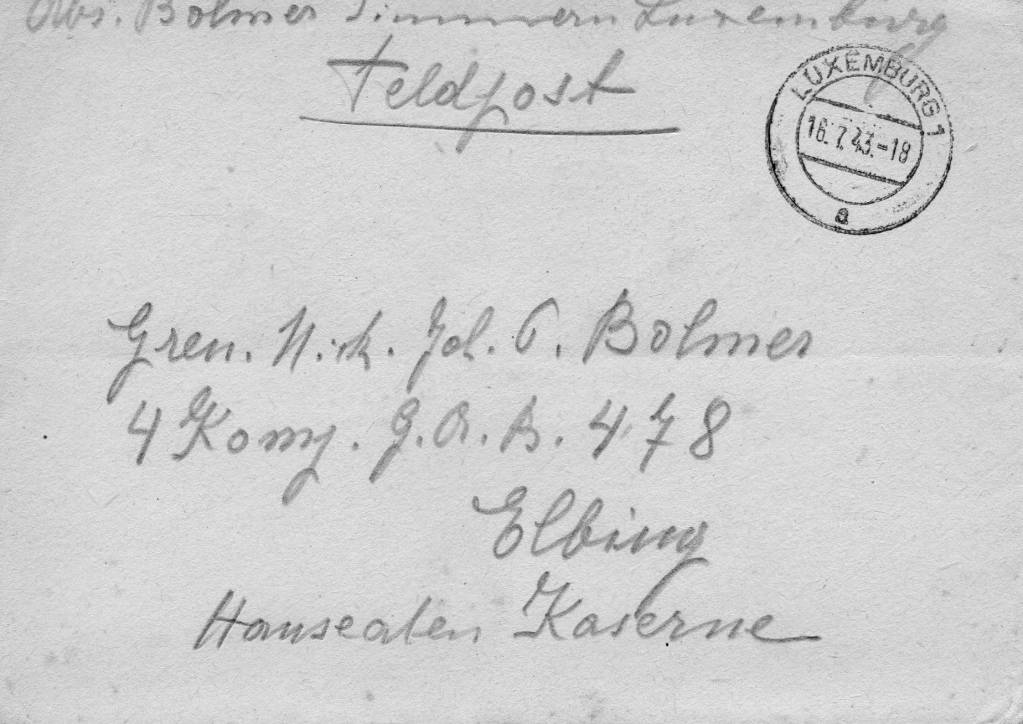 Abs. Bolmer Simmern Luxemburg
Feldpost
LUXEMBURG 1
16.7.43.-18
a
Gren. Nik. Joh. P. Bolmer
4 Komp. G. A. B. 478
Elbing
Hanseaten Kaserne